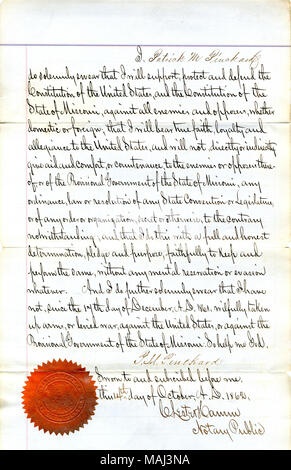 I, Patrick M Pinckard
do solemnly swear that I will support, protect and defend the
Constitution of the United States, and the Constitution of the
State of Missouri, against all enemies and opposers, whether
domestic or foreign, that I will bear true faith, loyalty, and
allegiance to the United States, and will not directly or indirectly
give aid and comfort, or countenance to the enemies or opposers there-
of, or of the Provisional Government of the State of Missouri, any
ordinance, law or resolution of any State Convention or Legislature,
or of any order or organization, secret or otherwise, to the contrary
notwithstanding; and that I do this with a full and honest
determination, pledge and purpose, faithfully to keep and
perform the same, without any mental reservation or evasion
whatever. And I do further solemnly swear that I have
not, since the 17th day of December, A.D. 1861, wilfully taken up
arms, or levied war, against the United States, or against the
Provisional Government of the State of Missouri: So help me God.
P.M. Pinckard
Sworn to and subscribed before me,
this day of October A.D. 1862,
Notary Public
alamy
Image ID: MAJ3NA
www.alamy.com